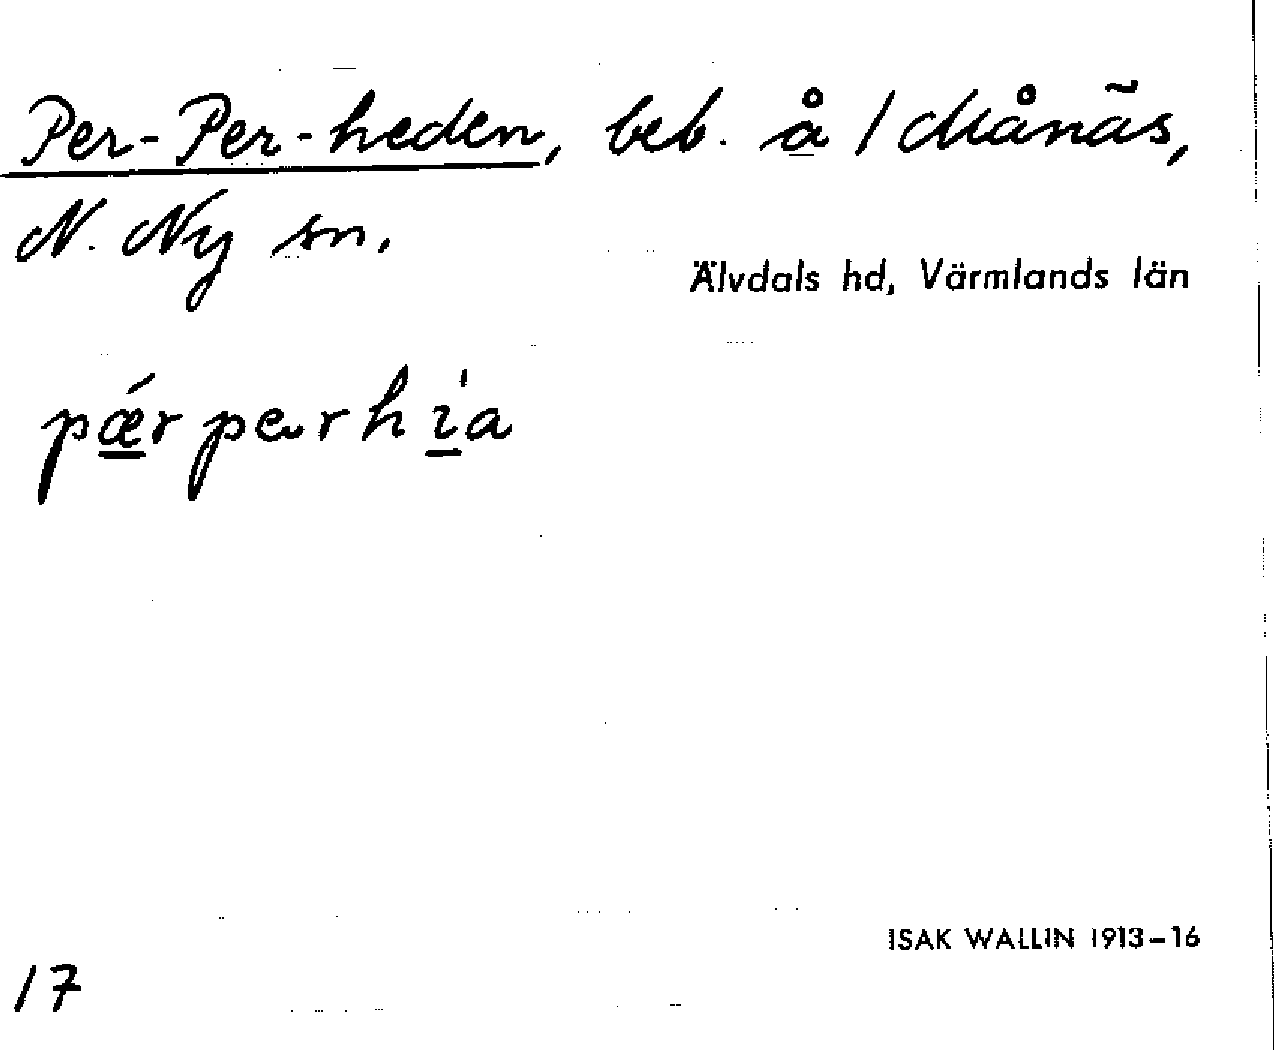 Per-Per-heden, beb. å 1 Månäs,
N. Ny sn.
Älvdals hd, Värmlands län
pǽrperhi̍a
ISAK WALLIN 1913-16
17